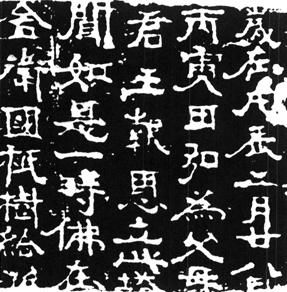 歲在戊辰二月廿八
丙寅田弘為父母
君王報恩立此塔
聞如是一時佛在
舍衛國祇樹給孤